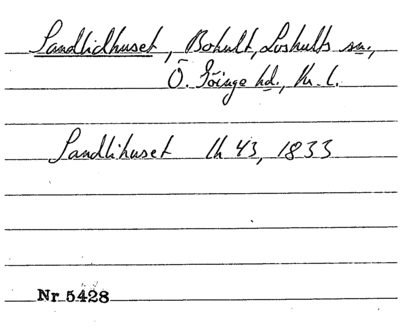 Sandlidhuset, Bohult, Loshults sn.,
Ö. Göinge hd., Kr. l.
Sandlihuset lh 43, 1833
Nr 5428